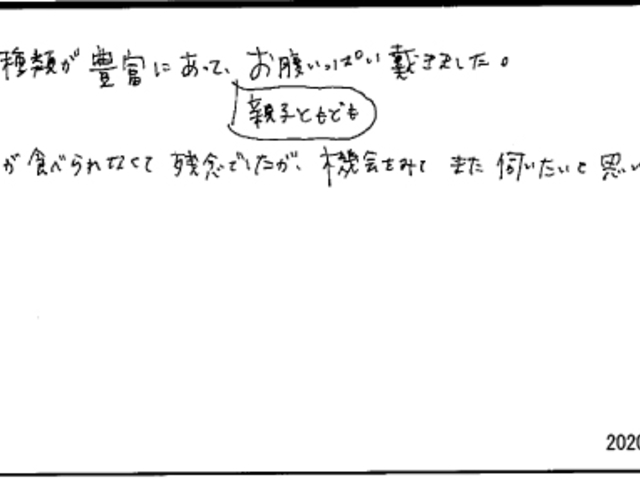 種類が豊富にあって、お腹いっぱい戴きました。
親子ともども
が食べられなくて残念でしたが、機会をみてまた伺いたいと思い
2020